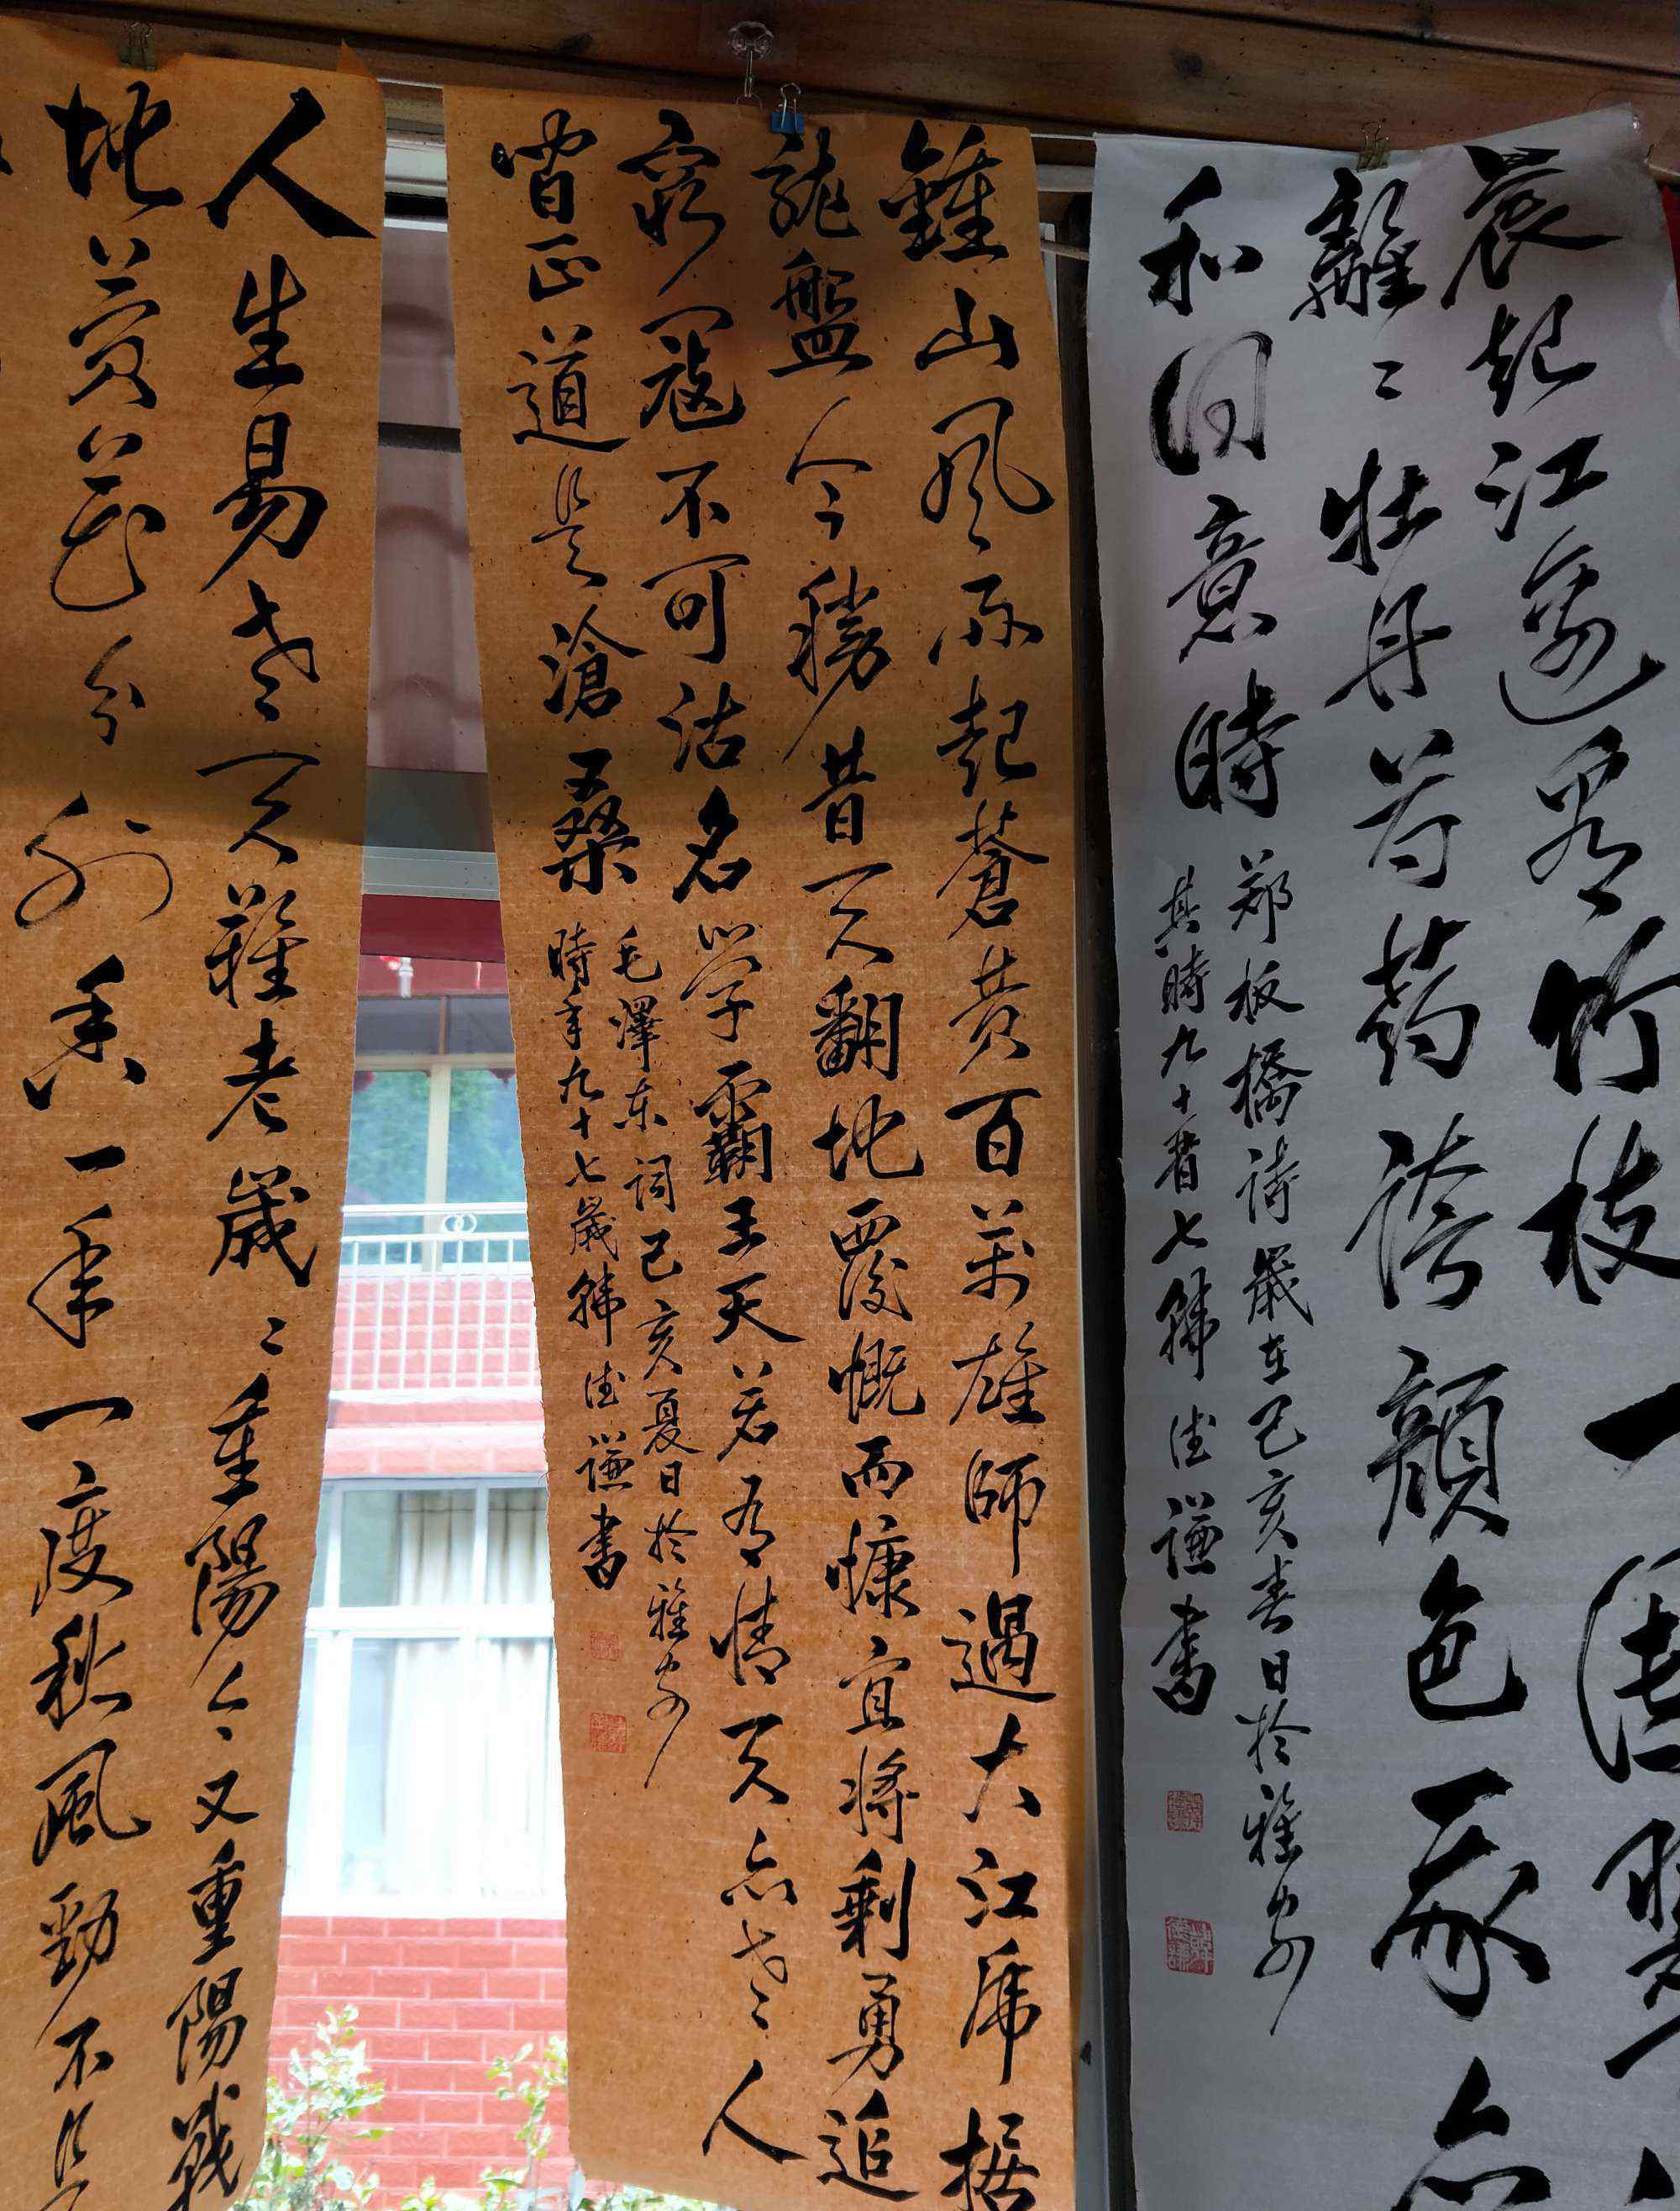 晨起江邊看竹枝一團
離〻牡丹芍药誇顏色我亦
和得意時
郑板橋詩歲在己亥春日於雅安
其時九十有七韩德謙書
鍾山風雨起蒼黄百萬雄師過大江虎据
龍盤今勝昔天翻地覆慨而慷宜將剩勇追
窮寇不可沽名學霸王天若有情天亦老人
間正道是滄桑
毛澤东詞己亥夏日於雅安
時年九十七歲韩德謙書
人生易老天難老歲〻重陽今又重陽戰
地黄花分外香一年一度秋風勁不是